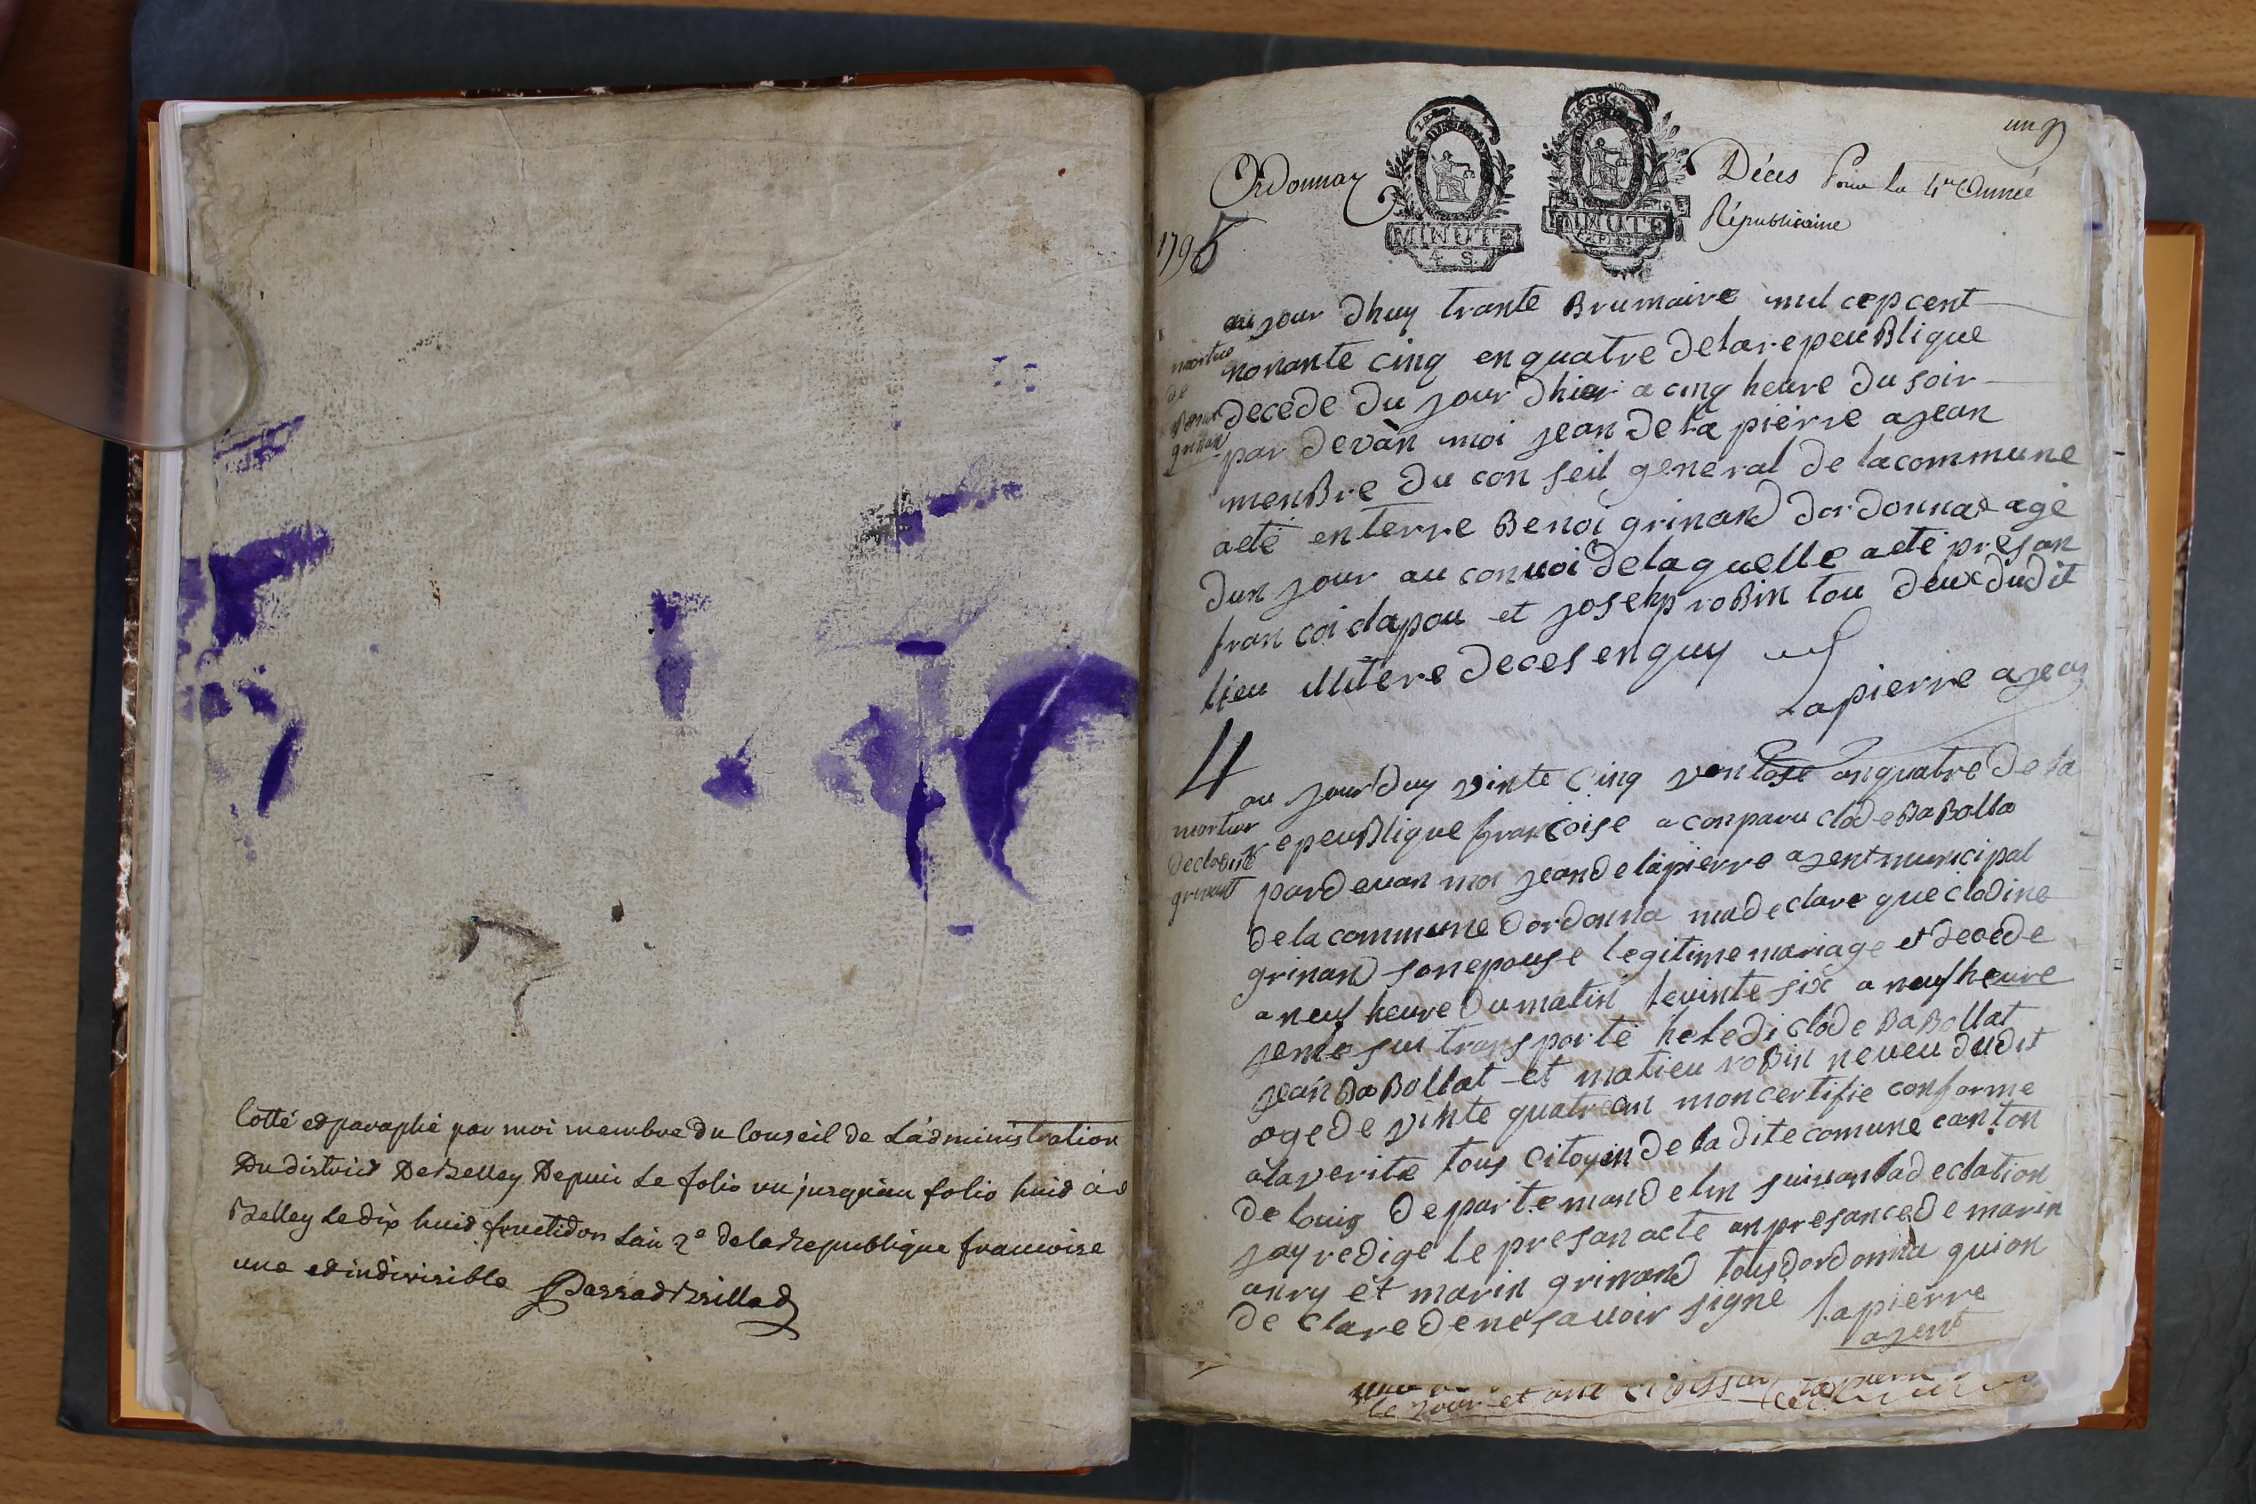 Cotté et paraphé par moi membre du Conseil de L'administration
Du district De Belley Depuis Le folio un jusqu'au folio huid à
Belley Le dix huid fructidor L'an 2e de la Republique francoise
une et indivisible Passad Brillad
un
Ordonnaz
LA LOI
MINUTE
4 S.
MINUTE
Décès Pour la 4me Année
Républicaine
1795
au jour dhuy trante Brumaire mil cep cent
nonante cinq en quatre de la repeuBlique
decede du jour dhier a cinq heure du soir
par devan moi jean de la pierre ajean
menBre du con seil general de la commune
a eté enterre Benoi grinand dordonnaz agé
dun jour au convoi de la quelle a eté presan
francoi dapou et josehp roBin tou deux dudit
lieu decesenguy
Lapierre ajean
mortue
de
Benoi
grinan
4
au jourduy vinte cinq ventose an quatre de la
repeuBlique francoise a conparu clode BaBolla
pardevan moi jean de lapierre ajent municipal
de la commune dordonna ma declare que clodine
grinand son epouse legitime mariage et decede
a neuf heure du matin le vinte six a neuf heure
jeme sui transporté he ledi clode BaBollat
jean BaBollat et matieu roBin neveu dudit
age de vinte quatre an mon certifie conforme
a la verite tous citoyein de la dite comune canton
de louig departemand elin suivant la declation
jay redige le presan acte an presance de marin
anry et marin grinand tous dordonna qui on
declare de ne savoir signé lapierre
ajent
mortuer
de clodine
grinant
le jour et ans ci dessus